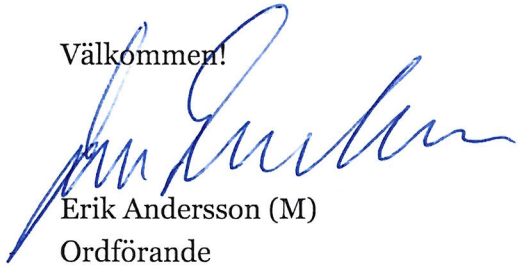 Välkommen!
Erik Andersson (M)
Ordförande